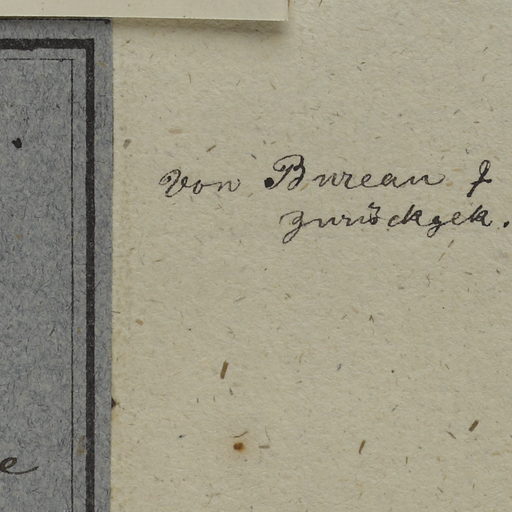 Von Bureau J
zurückgek.
e